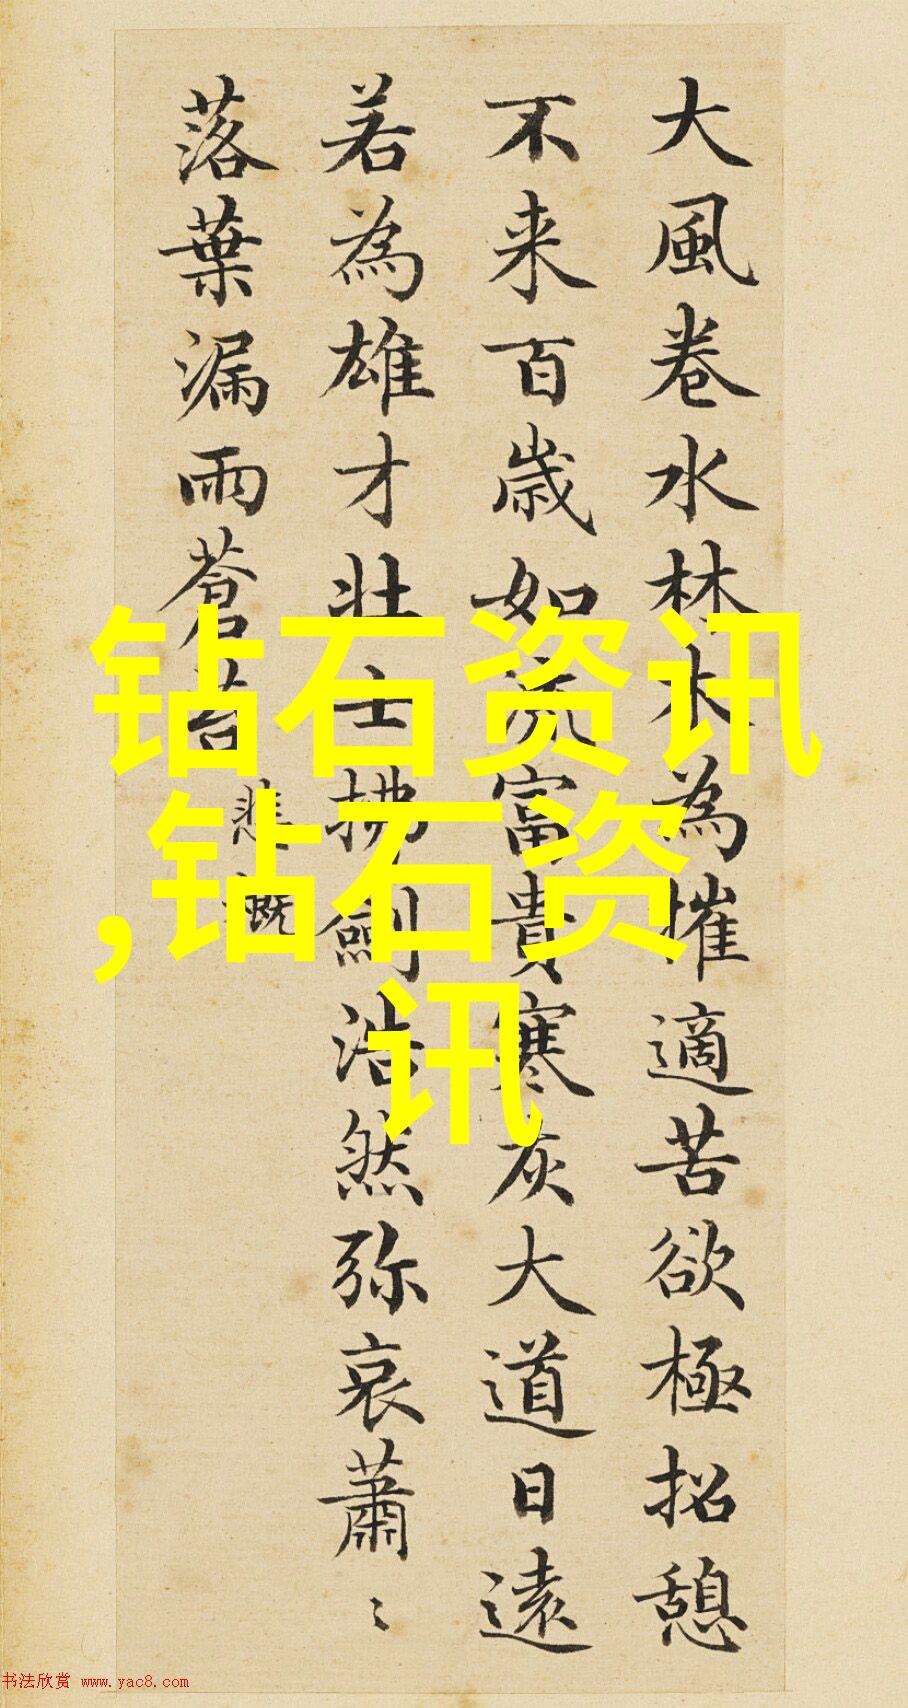 大風卷水林木為摧適苦欲極招憩
不来百歲如流富貴寒灰大道日遠
若為雄才壯士拂劍浩然弥哀蕭〻
落葉漏雨蒼苔
悲慨
钻石资讯
,钻石资
讯
书法欣赏 www.yac8.com